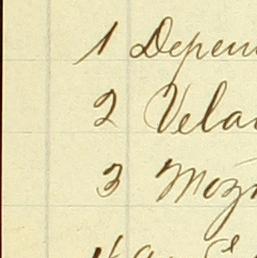 1 Depen
2 Vela
3 Moz
4